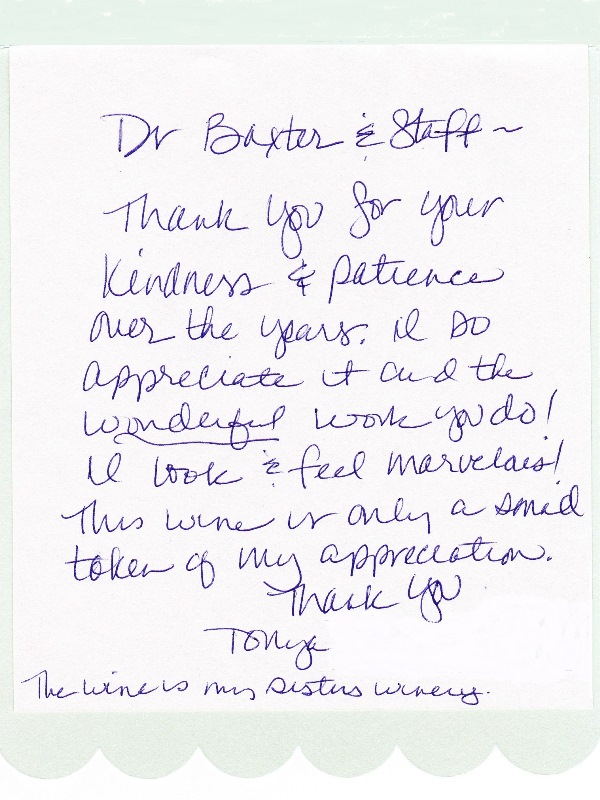 Dr Baxter & Staff ~
Thank you for your
kindness & patience
over the years. I so
appreciate it and the
wonderful work you do!
I look & feel marvelous!
This wine is only a small
token of my appreciation.
Thank you
Tonya
The wine is my sisters winery.